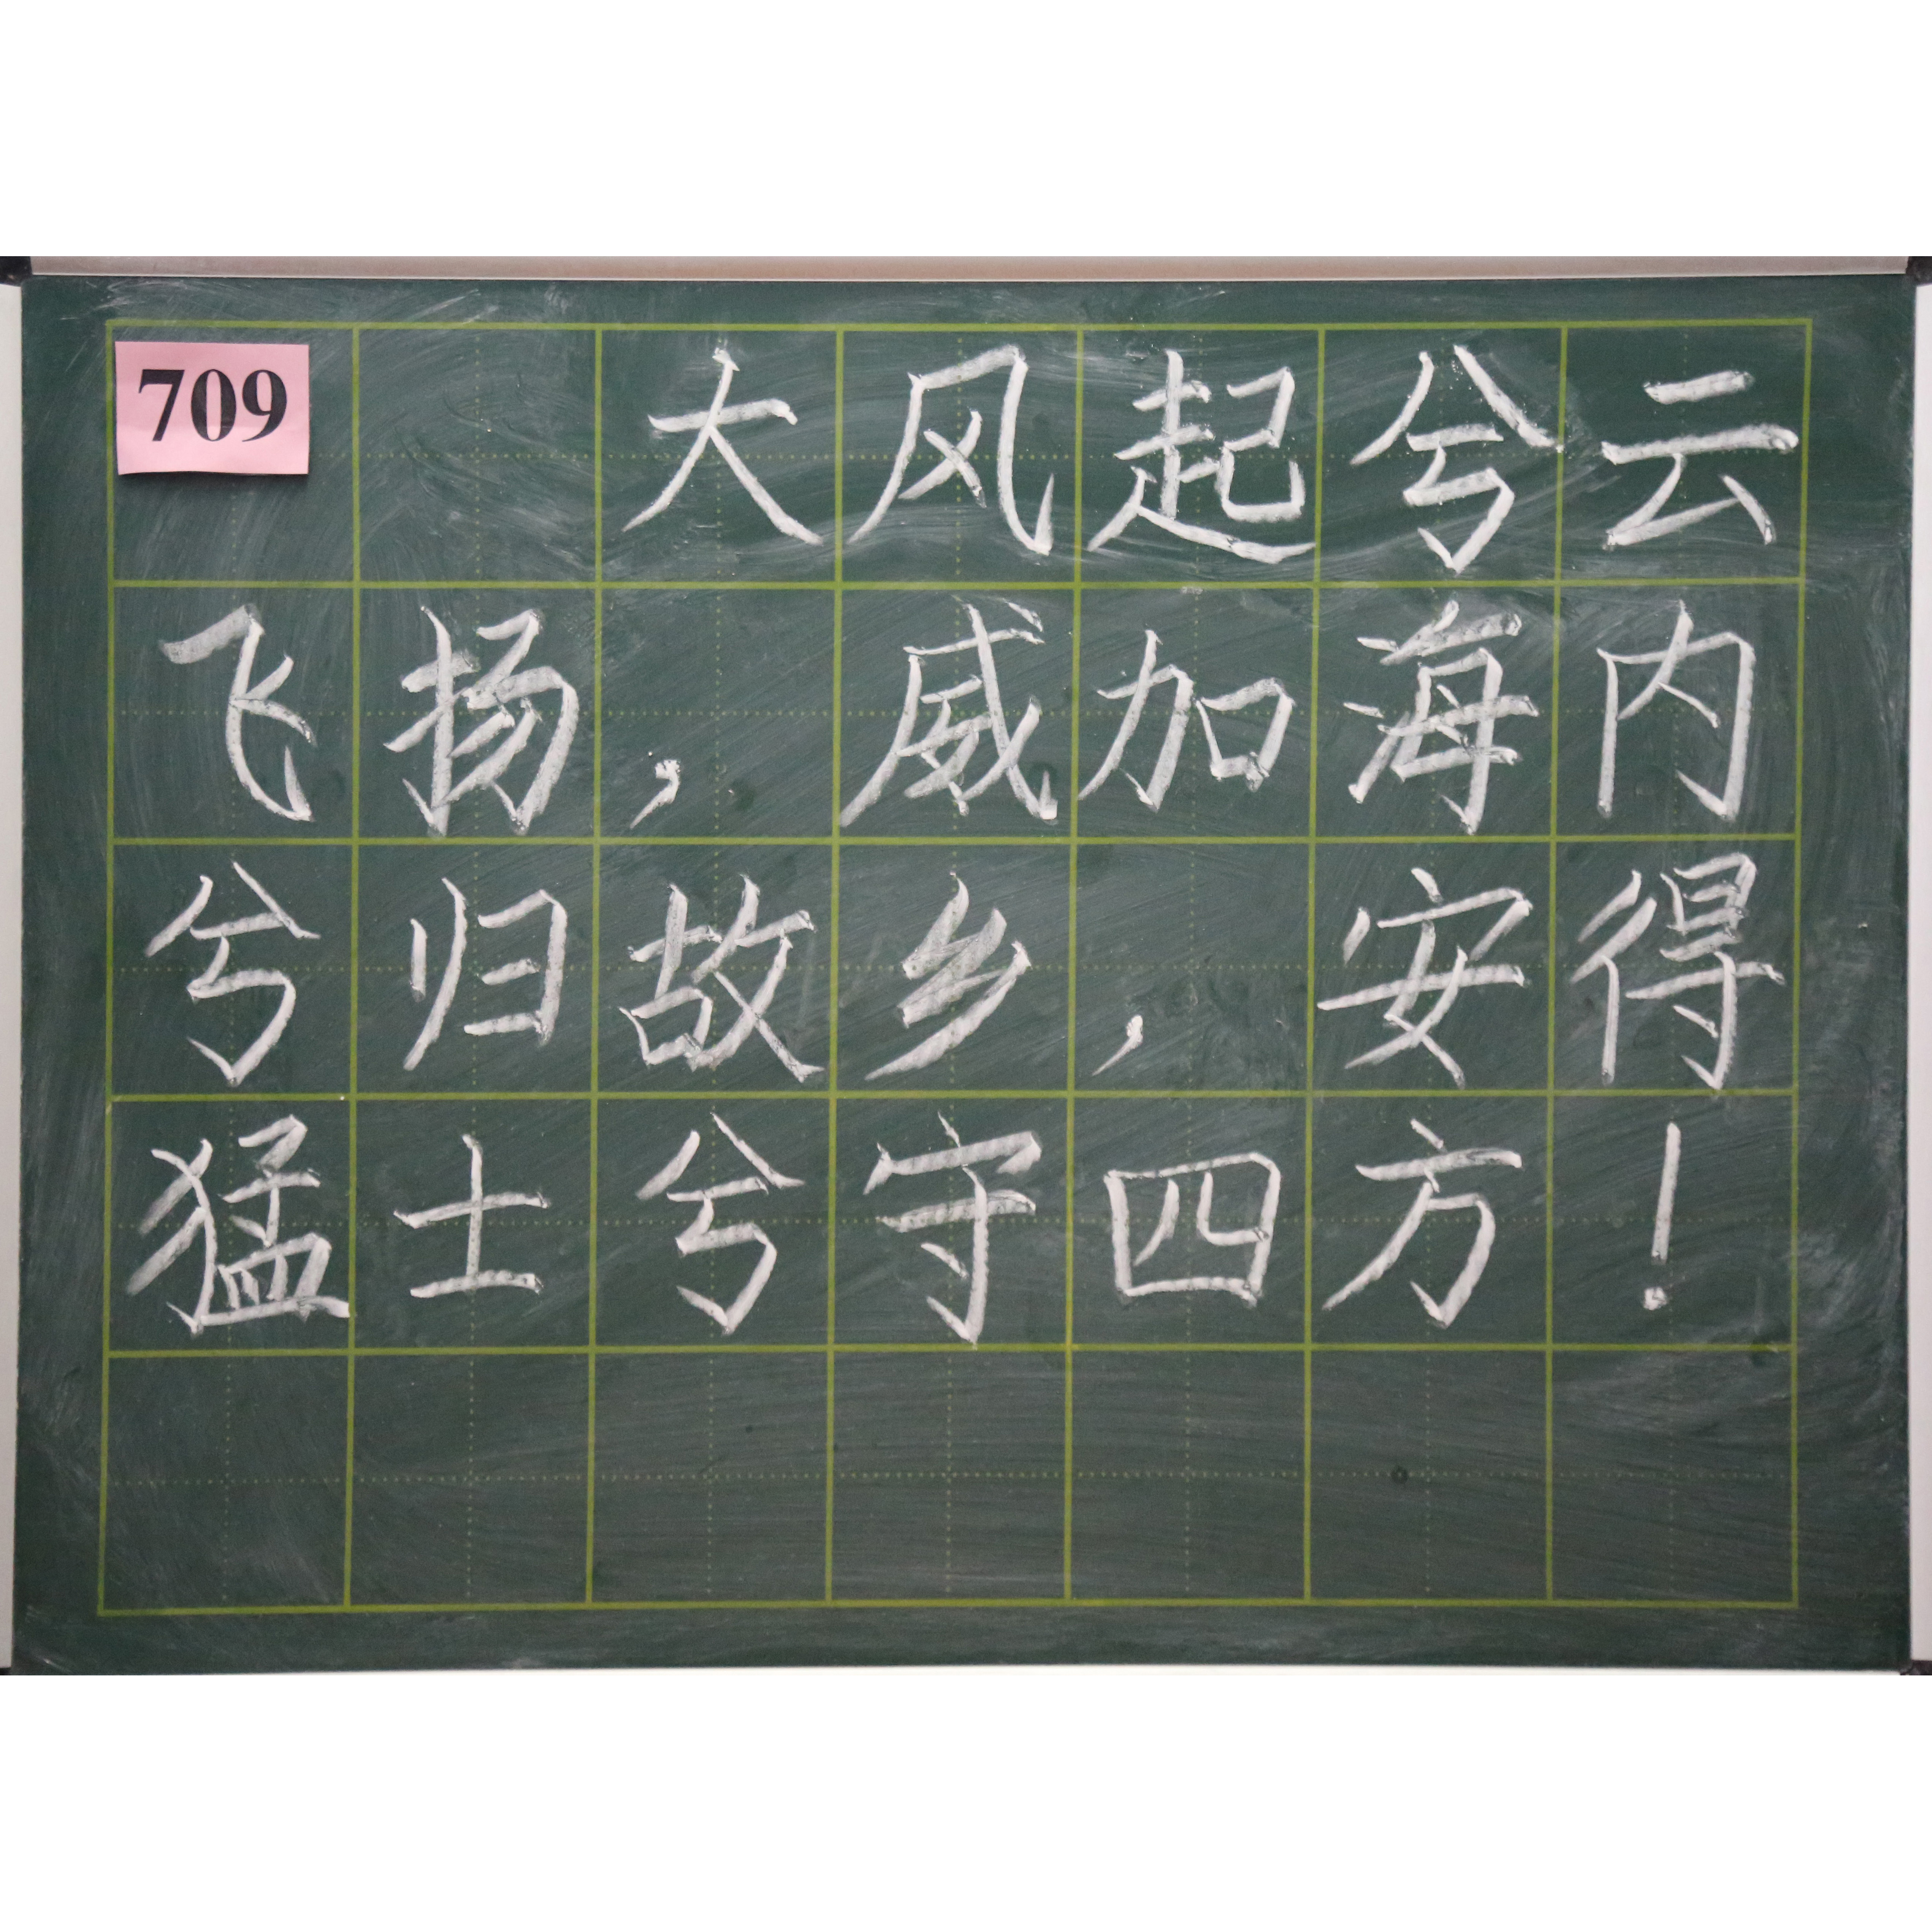 709
大风起兮云
飞扬，威加海内
兮归故乡，安得
猛士兮守四方！